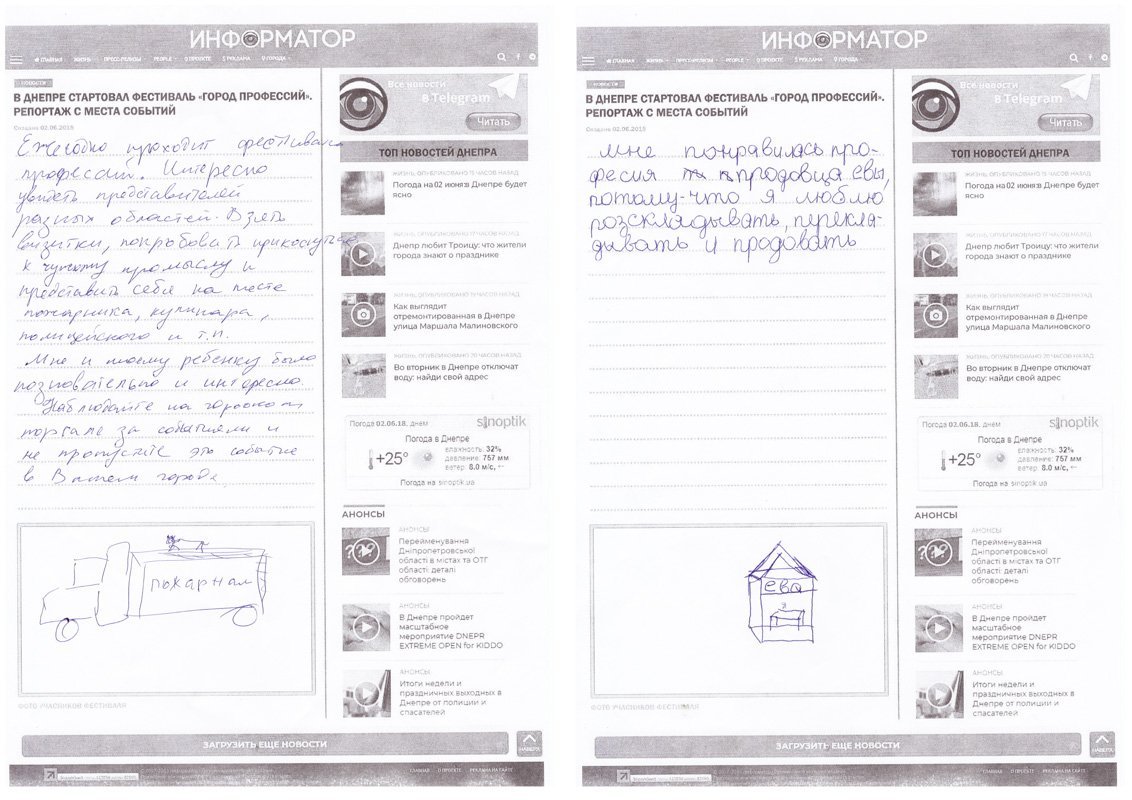 ИНФОРМАТОР
ГЛАВНАЯ ЖИЗНЬ ПРЕСС-РЕЛИЗЫ PEOPLE О ПРОЕКТЕ $ РЕКЛАМА О ГОРОДА
НОВОСТИ
В ДНЕПРЕ СТАРТОВАЛ ФЕСТИВАЛЬ «ГОРОД ПРОФЕССИЙ».
РЕПОРТАЖ С МЕСТА СОБЫТИЙ
Создано 02.06.2018
Ежегодно проходит фестиваль
профессий. Интересно
увидеть представителей
разных областей. Взять
визитки, попробовать прикоснуться
к чужому промыслу и
представить себя на месте
пожарника, кулинара,
полицейского и т.п.
Мне и моему ребенку было
познавательно и интересно.
Наблюдайте на городском
портале за событиями и
не пропустите это событие
в Вашем городе.
пожарная
ФОТО УЧАСНИКОВ ФЕСТИВАЛЯ
Все новости
в Telegram
Читать
ТОП НОВОСТЕЙ ДНЕПРА
ЖИЗНЬ, ОПУБЛИКОВАНО 13 ЧАСОВ НАЗАД
Погода на 02 июня в Днепре будет
ясно
ЖИЗНЬ, ОПУБЛИКОВАНО 17 ЧАСОВ НАЗАД
Днепр любит Троицу: что жители
города знают о празднике
ЖИЗНЬ, ОПУБЛИКОВАНО 19 ЧАСОВ НАЗАД
Как выглядит
отремонтированная в Днепре
улица Маршала Малиновского
ЖИЗНЬ, ОПУБЛИКОВАНО 20 ЧАСОВ НАЗАД
Во вторник в Днепре отключат
воду: найди свой адрес
Погода 02.06.18, днем
sinoptik
Погода в Днепре
+25°
влажность: 32%
давление: 757 мм
ветер: 8.0 м/с, ←
Погода на sinoptik.ua
АНОНСЫ
АНОНСЫ
Перейменування
Дніпропетровської
області в містах та ОТГ
області: деталі
обговорень
АНОНСЫ
В Днепре пройдет
масштабное
мероприятие DNEPR
EXTREME OPEN for KIDDO
АНОНСЫ
Итоги недели и
праздничных выходных в
Днепре от полиции и
спасателей
ЗАГРУЗИТЬ ЕЩЕ НОВОСТИ
НАВЕРХ
ГЛАВНАЯ О ПРОЕКТЕ РЕКЛАМА НА САЙТЕ
ИНФОРМАТОР
ГЛАВНАЯ ЖИЗНЬ ПРЕСС-РЕЛИЗЫ PEOPLE О ПРОЕКТЕ $ РЕКЛАМА О ГОРОДА
НОВОСТИ
В ДНЕПРЕ СТАРТОВАЛ ФЕСТИВАЛЬ «ГОРОД ПРОФЕССИЙ».
РЕПОРТАЖ С МЕСТА СОБЫТИЙ
Создано 02.06.2018
мне понравилась про-
фесия продовца евы,
потому-что я люблю
розскладывать, перекла-
дывать и продовать
ева
ФОТО УЧАСНИКОВ ФЕСТИВАЛЯ
Все новости
в Telegram
Читать
ТОП НОВОСТЕЙ ДНЕПРА
ЖИЗНЬ, ОПУБЛИКОВАНО 13 ЧАСОВ НАЗАД
Погода на 02 июня в Днепре будет
ясно
ЖИЗНЬ, ОПУБЛИКОВАНО 17 ЧАСОВ НАЗАД
Днепр любит Троицу: что жители
города знают о празднике
ЖИЗНЬ, ОПУБЛИКОВАНО 19 ЧАСОВ НАЗАД
Как выглядит
отремонтированная в Днепре
улица Маршала Малиновского
ЖИЗНЬ, ОПУБЛИКОВАНО 20 ЧАСОВ НАЗАД
Во вторник в Днепре отключат
воду: найди свой адрес
Погода 02.06.18, днем
sinoptik
Погода в Днепре
+25°
влажность: 32%
давление: 757 мм
ветер: 8.0 м/с, ←
Погода на sinoptik.ua
АНОНСЫ
АНОНСЫ
Перейменування
Дніпропетровської
області в містах та ОТГ
області: деталі
обговорень
АНОНСЫ
В Днепре пройдет
масштабное
мероприятие DNEPR
EXTREME OPEN for KIDDO
АНОНСЫ
Итоги недели и
праздничных выходных в
Днепре от полиции и
спасателей
ЗАГРУЗИТЬ ЕЩЕ НОВОСТИ
НАВЕРХ
ГЛАВНАЯ О ПРОЕКТЕ РЕКЛАМА НА САЙТЕ